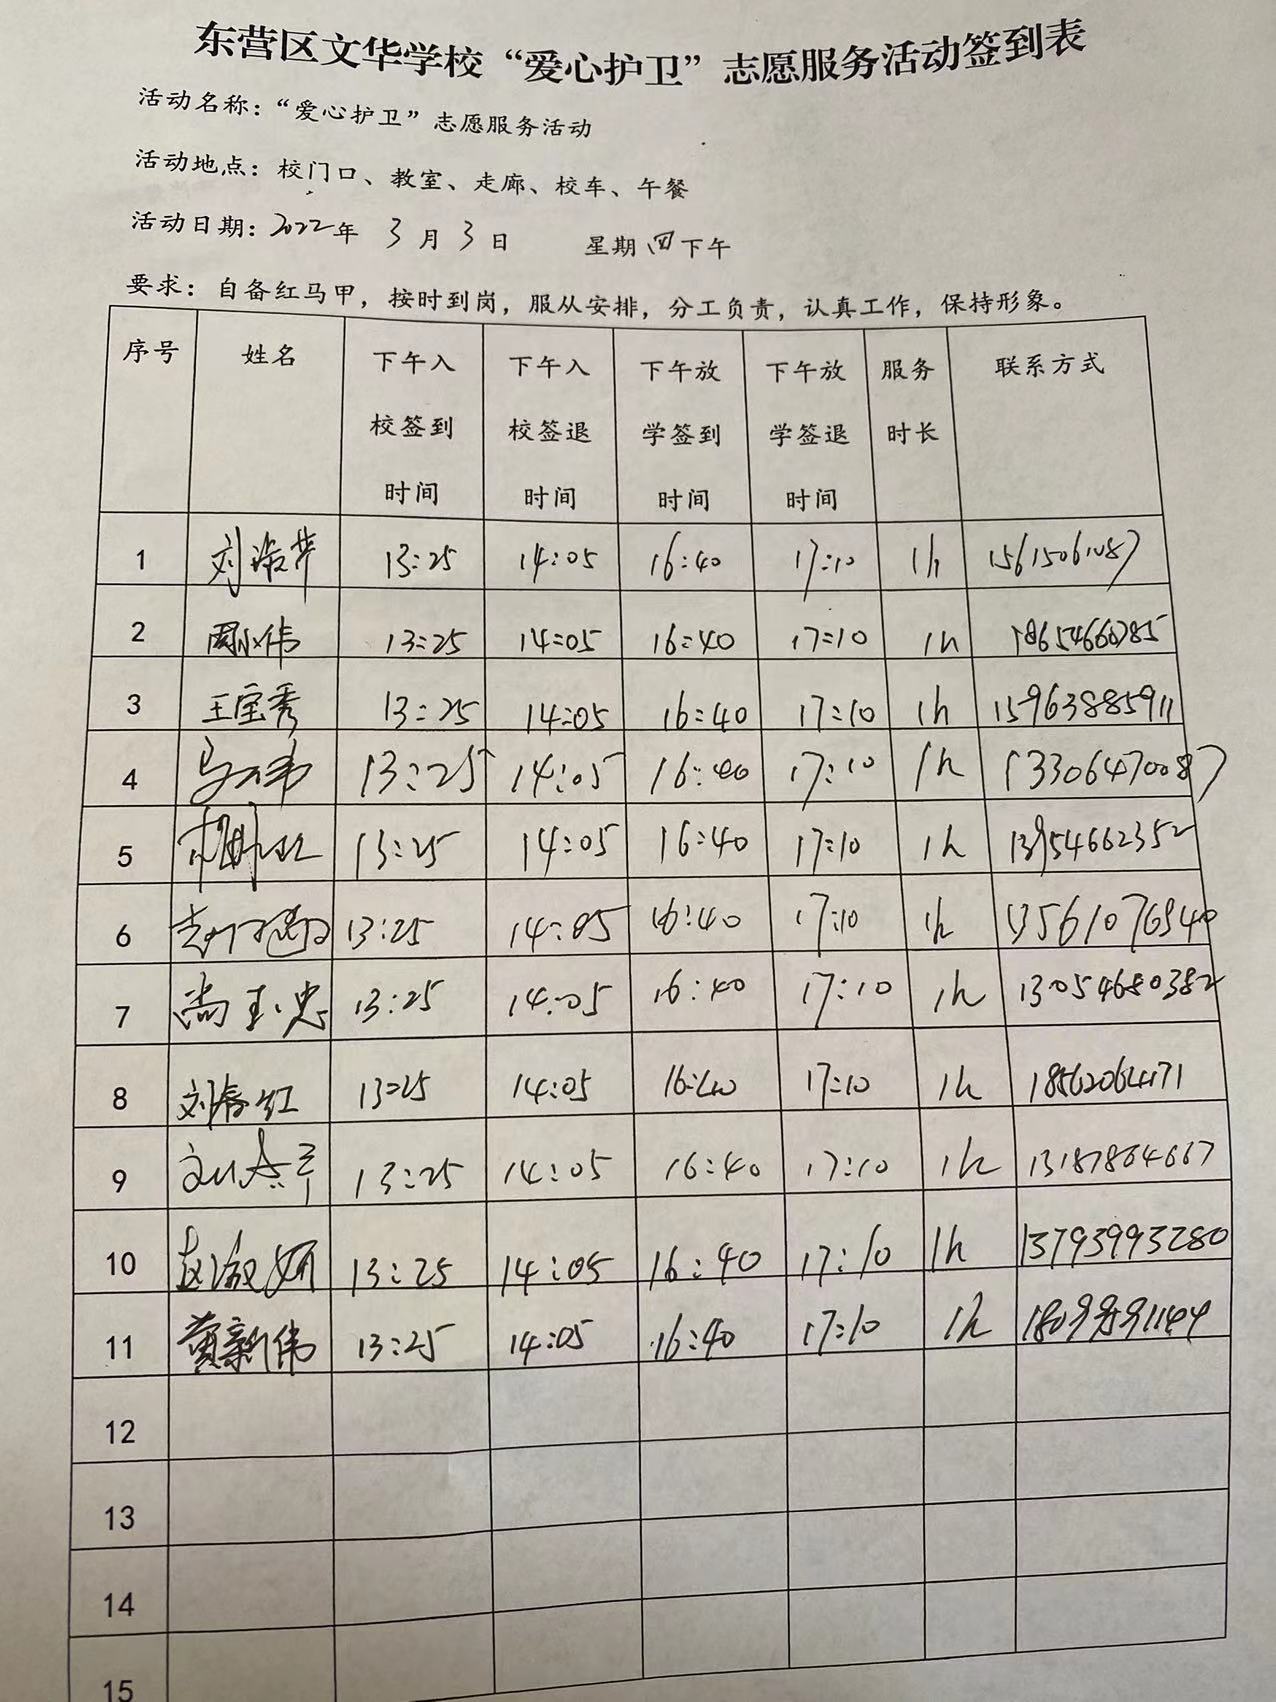 东营区文华学校“爱心护卫”志愿服务活动签到表
活动名称：“爱心护卫”志愿服务活动
活动地点：校门口、教室、走廊、校车、午餐
活动日期：2022年 3月3日 星期四下午
要求：自备红马甲，按时到岗，服从安排，分工负责，认真工作，保持形象。
序号 姓名 下午入校签到时间 下午入校签退时间 下午放学签到时间 下午放学签退时间 服务时长 联系方式
1 刘 13:25 14:05 16:40 17:10 1h 15615061087
2 伟 13:25 14:05 16:40 17:10 1h
3 王宝秀 13:25 14:05 16:40 17:10 1h 15963885911
4 13:25 14:05 16:40 17:10 1h 13306470087
5 13:25 14:05 16:40 17:10 1h 13954662352
6 13:25 14:05 16:40 17:10 1h 13561076940
7 尚玉忠 13:25 14:05 16:40 17:10 1h 13054680382
8 刘春红 13:25 14:05 16:40 17:10 1h 18562064171
9 13:25 14:05 16:40 17:10 1h 13187864667
10 赵淑娟 13:25 14:05 16:40 17:10 1h 13793993280
11 黄新伟 13:25 14:05 16:40 17:10 1h
12
13
14
15